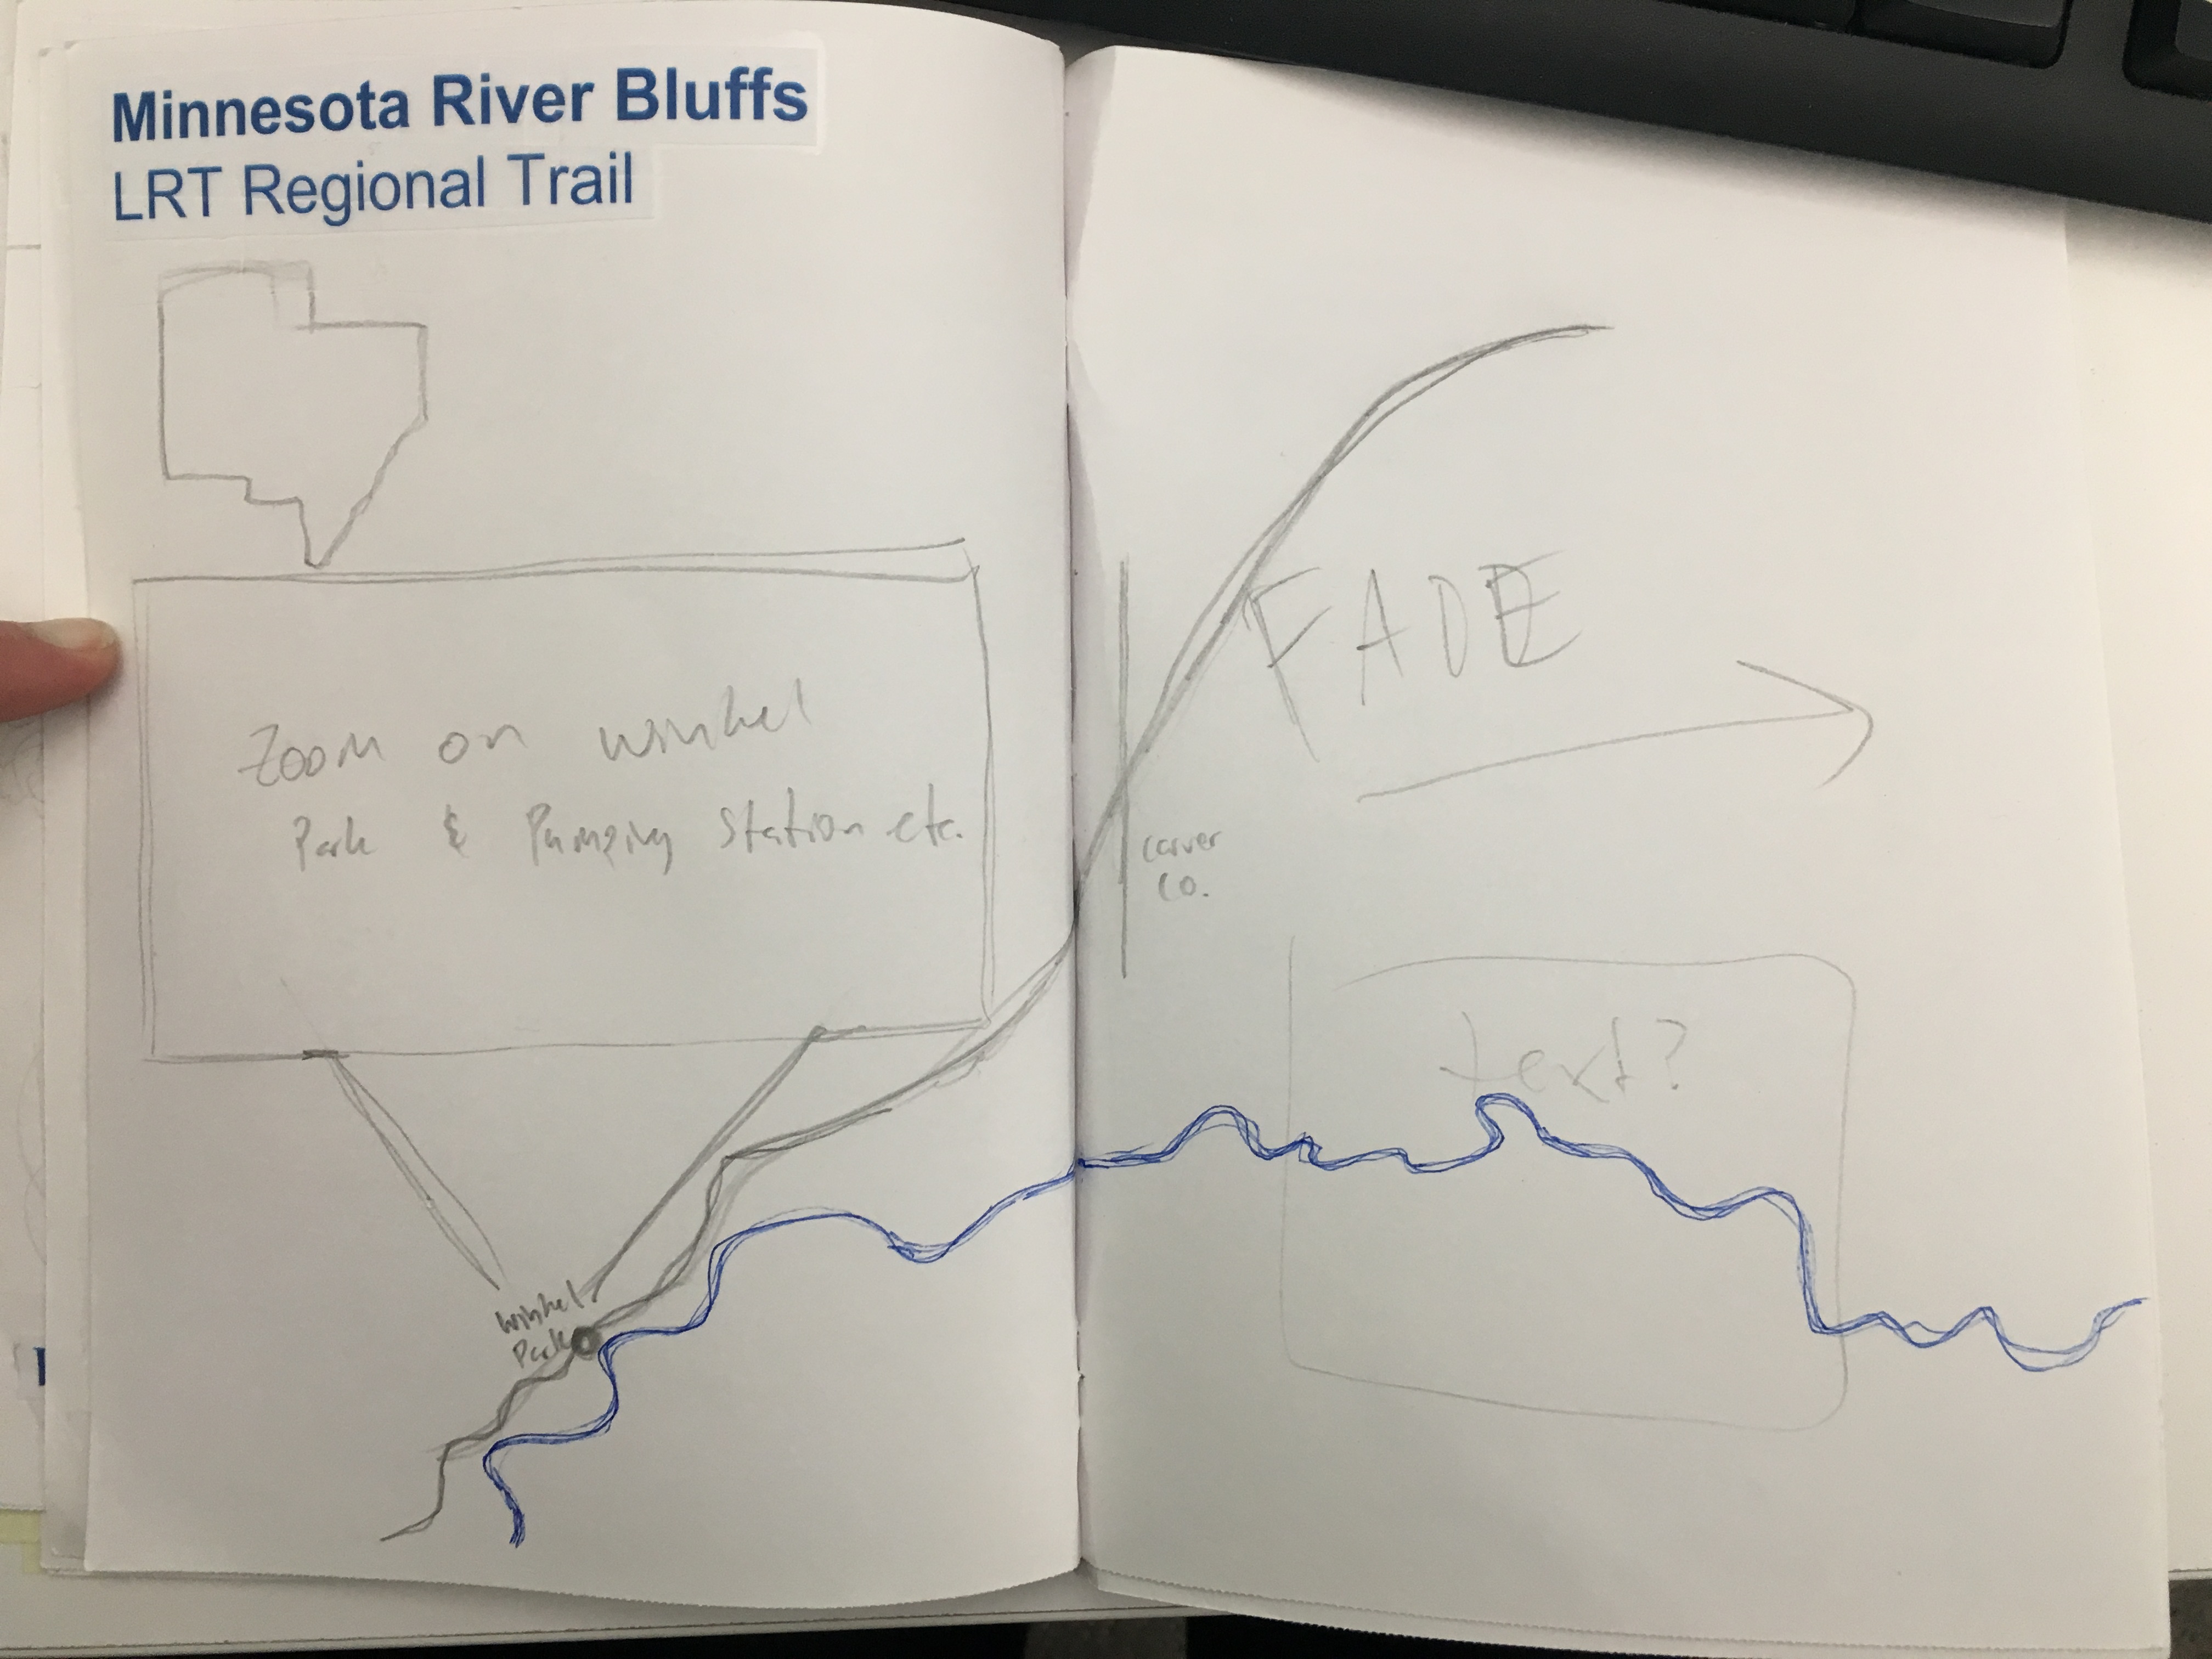 Minnesota River Bluffs
LRT Regional Trail
Zoom on Winkel
Park & Pumping Station etc.
Winkel
Park
FADE
Carver
Co.
text?